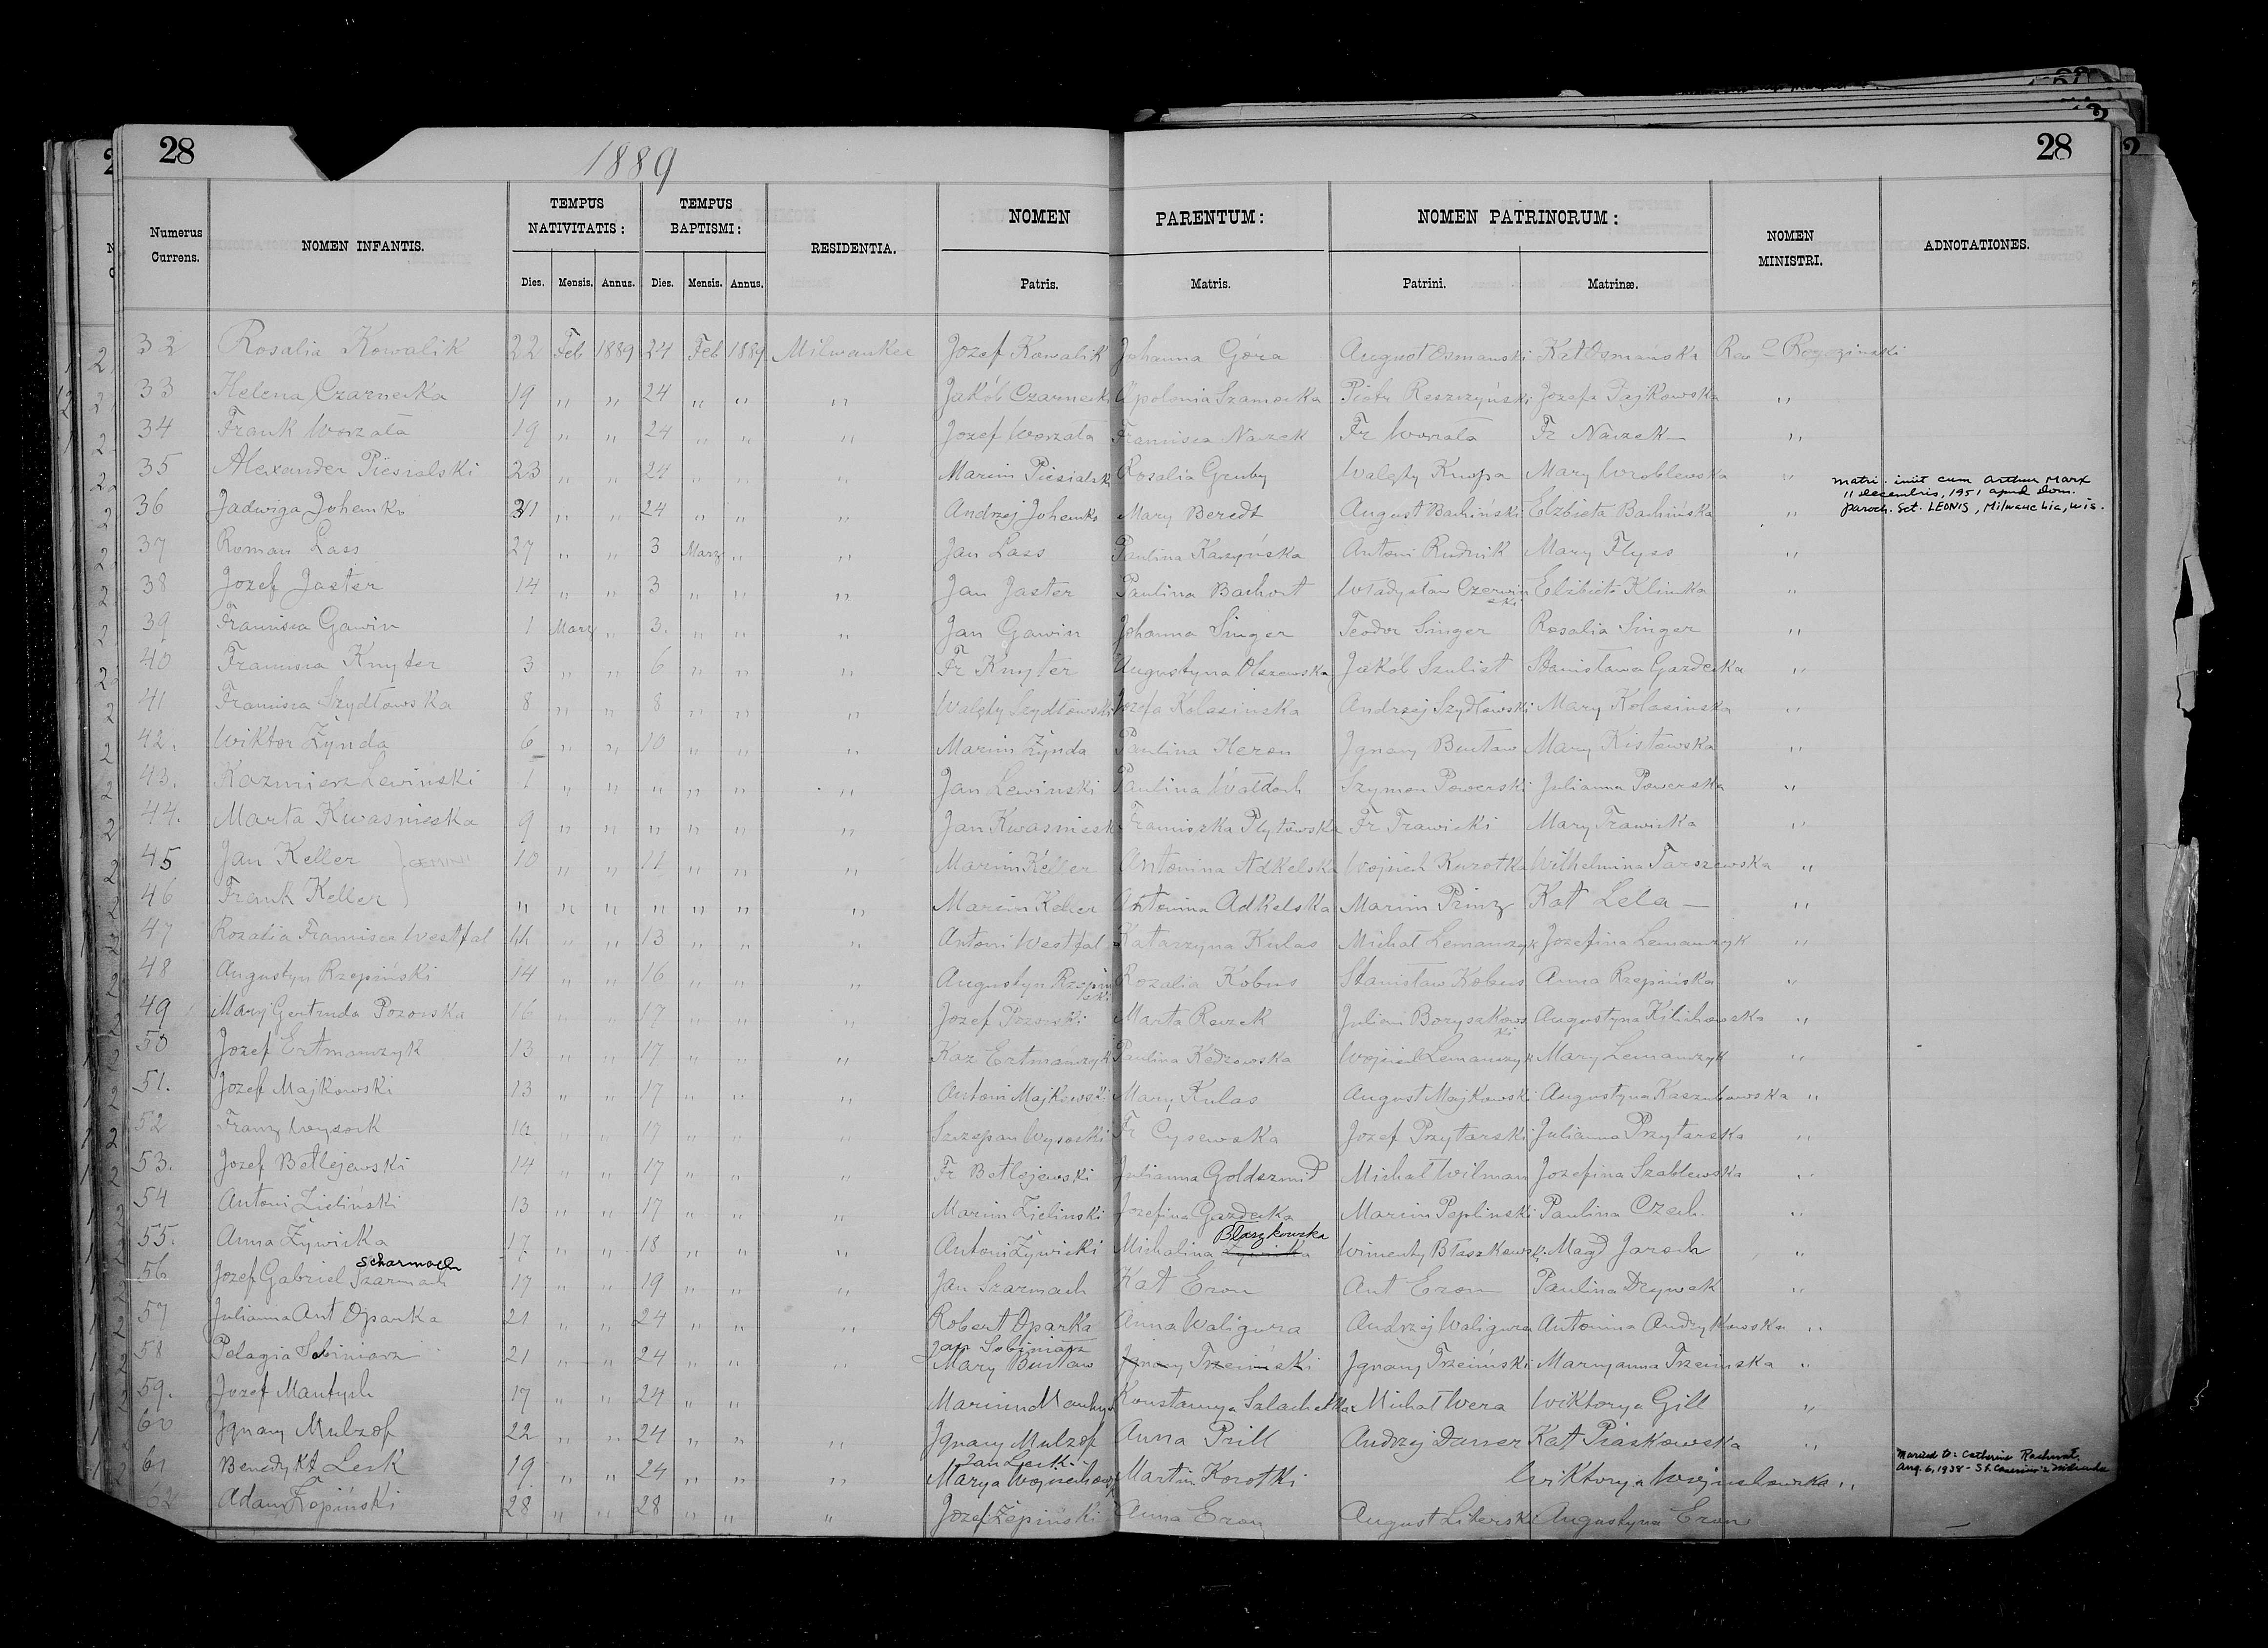 28
1889
28
Numerus Currens. NOMEN INFANTIS. TEMPUS NATIVITATIS: TEMPUS BAPTISMI: RESIDENTIA. NOMEN PARENTUM: NOMEN PATRINORUM: NOMEN MINISTRI. ADNOTATIONES.
Dies. Mensis. Annus. Dies. Mensis. Annus. Patris. Matris. Patrini. Matrinæ.
32 Rosalia Kowalik 22 Feb 1889 24 Feb 1889 Milwaukee Jozef Kowalik Johanna Góra August Osmanski Kat Osmanska Rev
33 Helena Czarnecka 19 " " 24 " " " Jakób Czarnecki Apolonia Szamocka Piotr Reszczyński Jozefa Fajkowska "
34 Frank Worzała 19 " " 24 " " " Jozef Worzała Francisca Naczek Fr Worzała Fr Naczek "
35 Alexander Piesialski 23 " " 24 " " " Marcin Piesialski Rosalia Gruby Walęty Knopa Mary Wroblewska "
matri. iniit cum Arthur Marx
11 decembris, 1951 apud Dom.
paroch. Sct. LEONIS, Milwauchia, Wis.
36 Jadwiga Johemko " " 24 " " " Andrzej Johemko Mary Beredt August Bachiński Elzbieta Bachińska "
37 Roman Lass 27 " " 3 Marz " " Jan Lass Paulina Kaszyńska Antoni Rudnik Mary Flyss "
38 Jozef Jaster 14 " " 3 " " " Jan Jaster Paulina Bachort Władysław Czerwinski Elzbieta Klimka "
39 Francisca Gawin 1 Marz " 3. " " " Jan Gawin Johanna Singer Teodor Singer Rosalia Singer "
40 Francisca Knyter 3 " " 6 " " " Fr Knyter Augustyna Olszewska Jakób Szulist Stanisława Gardecka "
41 Francisca Szydłowska 8 " " 8 " " " Walęty Szydłowski Jozefa Kolasinska Andrzej Szydłowski Mary Kolasinska "
42. Wiktor Żynda 6 " " 10 " " " Marcin Żynda Paulina Heron Ignacy Butaw Mary Kistowska "
43. Kazmierz Lewiński 1 " " " " " " Jan Lewinski Paulina Wałdoch Szymon Powerski Julianna Powerska "
44. Marta Kwasniecka 9 " " " " " " Jan Kwasnieski Franciszka Płytowska Fr Trawicki Mary Trawicka "
45 Jan Keller GEMINI 10 " " 11 " " " Marcin Keller Antonina Adkelska Wojciech Kurotka Wilhelmina Tarszewska "
46 Frank Keller " " " " " " " Marcin Keller Antonina Adkelska Marcin Prinz Kat Lela "
47 Rozalia Francisca Westfal 11 " " 13 " " " Antoni Westfal Katarzyna Kulas Michał Lemanczyk Jozefina Lemanczyk "
48 Augustyn Rzepiński 14 " " 16 " " " Augustyn Rzepinski Rozalia Kobus Stanisław Kobus Anna Rzepińska "
49 Mary Gertruda Pozorska 16 " " 17 " " " Jozef Pozorski Marta Reczek Julian Boryszkowski Augustyna Klichowska "
50 Jozef Ertmanczyk 13 " " 17 " " " Kaz Ertmanczyk Paulina Kedrowska Wojciech Lemanczyk Mary Lemanczyk "
51. Jozef Majkowski 13 " " 17 " " " Antoni Majkowski Mary Kulas August Majkowski Augustyna Kaszubowska "
52 Franz Wysock 10 " " 17 " " " Szczepan Wysocki Fr Cysewska Jozef Przytarski Julianna Przytarska "
53. Jozef Betlejewski 14 " " 17 " " " Fr Betlejewski Julianna Goldszmid Michał Wilman Jozefina Szablewska "
54 Antoni Zieliński 13 " " 17 " " " Marcin Zielinski Jozefina Gardecka Marcin Peplinski Paulina Czech "
55. Anna Żywicka 17 " " 18 " " " Antoni Żywicki Michalina Żywicka Blaszkowska Wincenty Błaszkowski Magd Jaroch "
56 Jozef Gabriel Szarmach Scharmach 17 " " 19 " " " Jan Szarmach Kat Eron Ant Eron Paulina Drywek "
57 Julianna Ant Oparka 21 " " 24 " " " Robert Oparka Anna Waligura Andrzej Waligura Antonina Andrykowska "
58 Pelagia Sobiniarz 21 " " 24 " " " Jan Sobiniarz Mary Butaw Ignacy Trzeiński Ignacy Trzeiński Maryanna Trzeinska "
59. Jozef Mantych 17 " " 24 " " Marcin Mantych Konstancya Salachetka Michał Wera Wiktorya Gill "
60 Ignacy Mulzof 22 " " 24 " " " Ignacy Mulzof Anna Prill Andrzej Darver Kat Piaskowska "
61 Benedykt Lesk 19 " " 24 " " " Jan Lesk Marya Wojciechow Martin Korotki Wiktorya Wojciechowska "
Married to: Catherine
Aug. 6, 1938 - St. Casimir's Milwaukee
62 Adam Żepiński 28 " " 28 " " " Jozef Żepiński Anna Eron August Literski Augustyna Eron